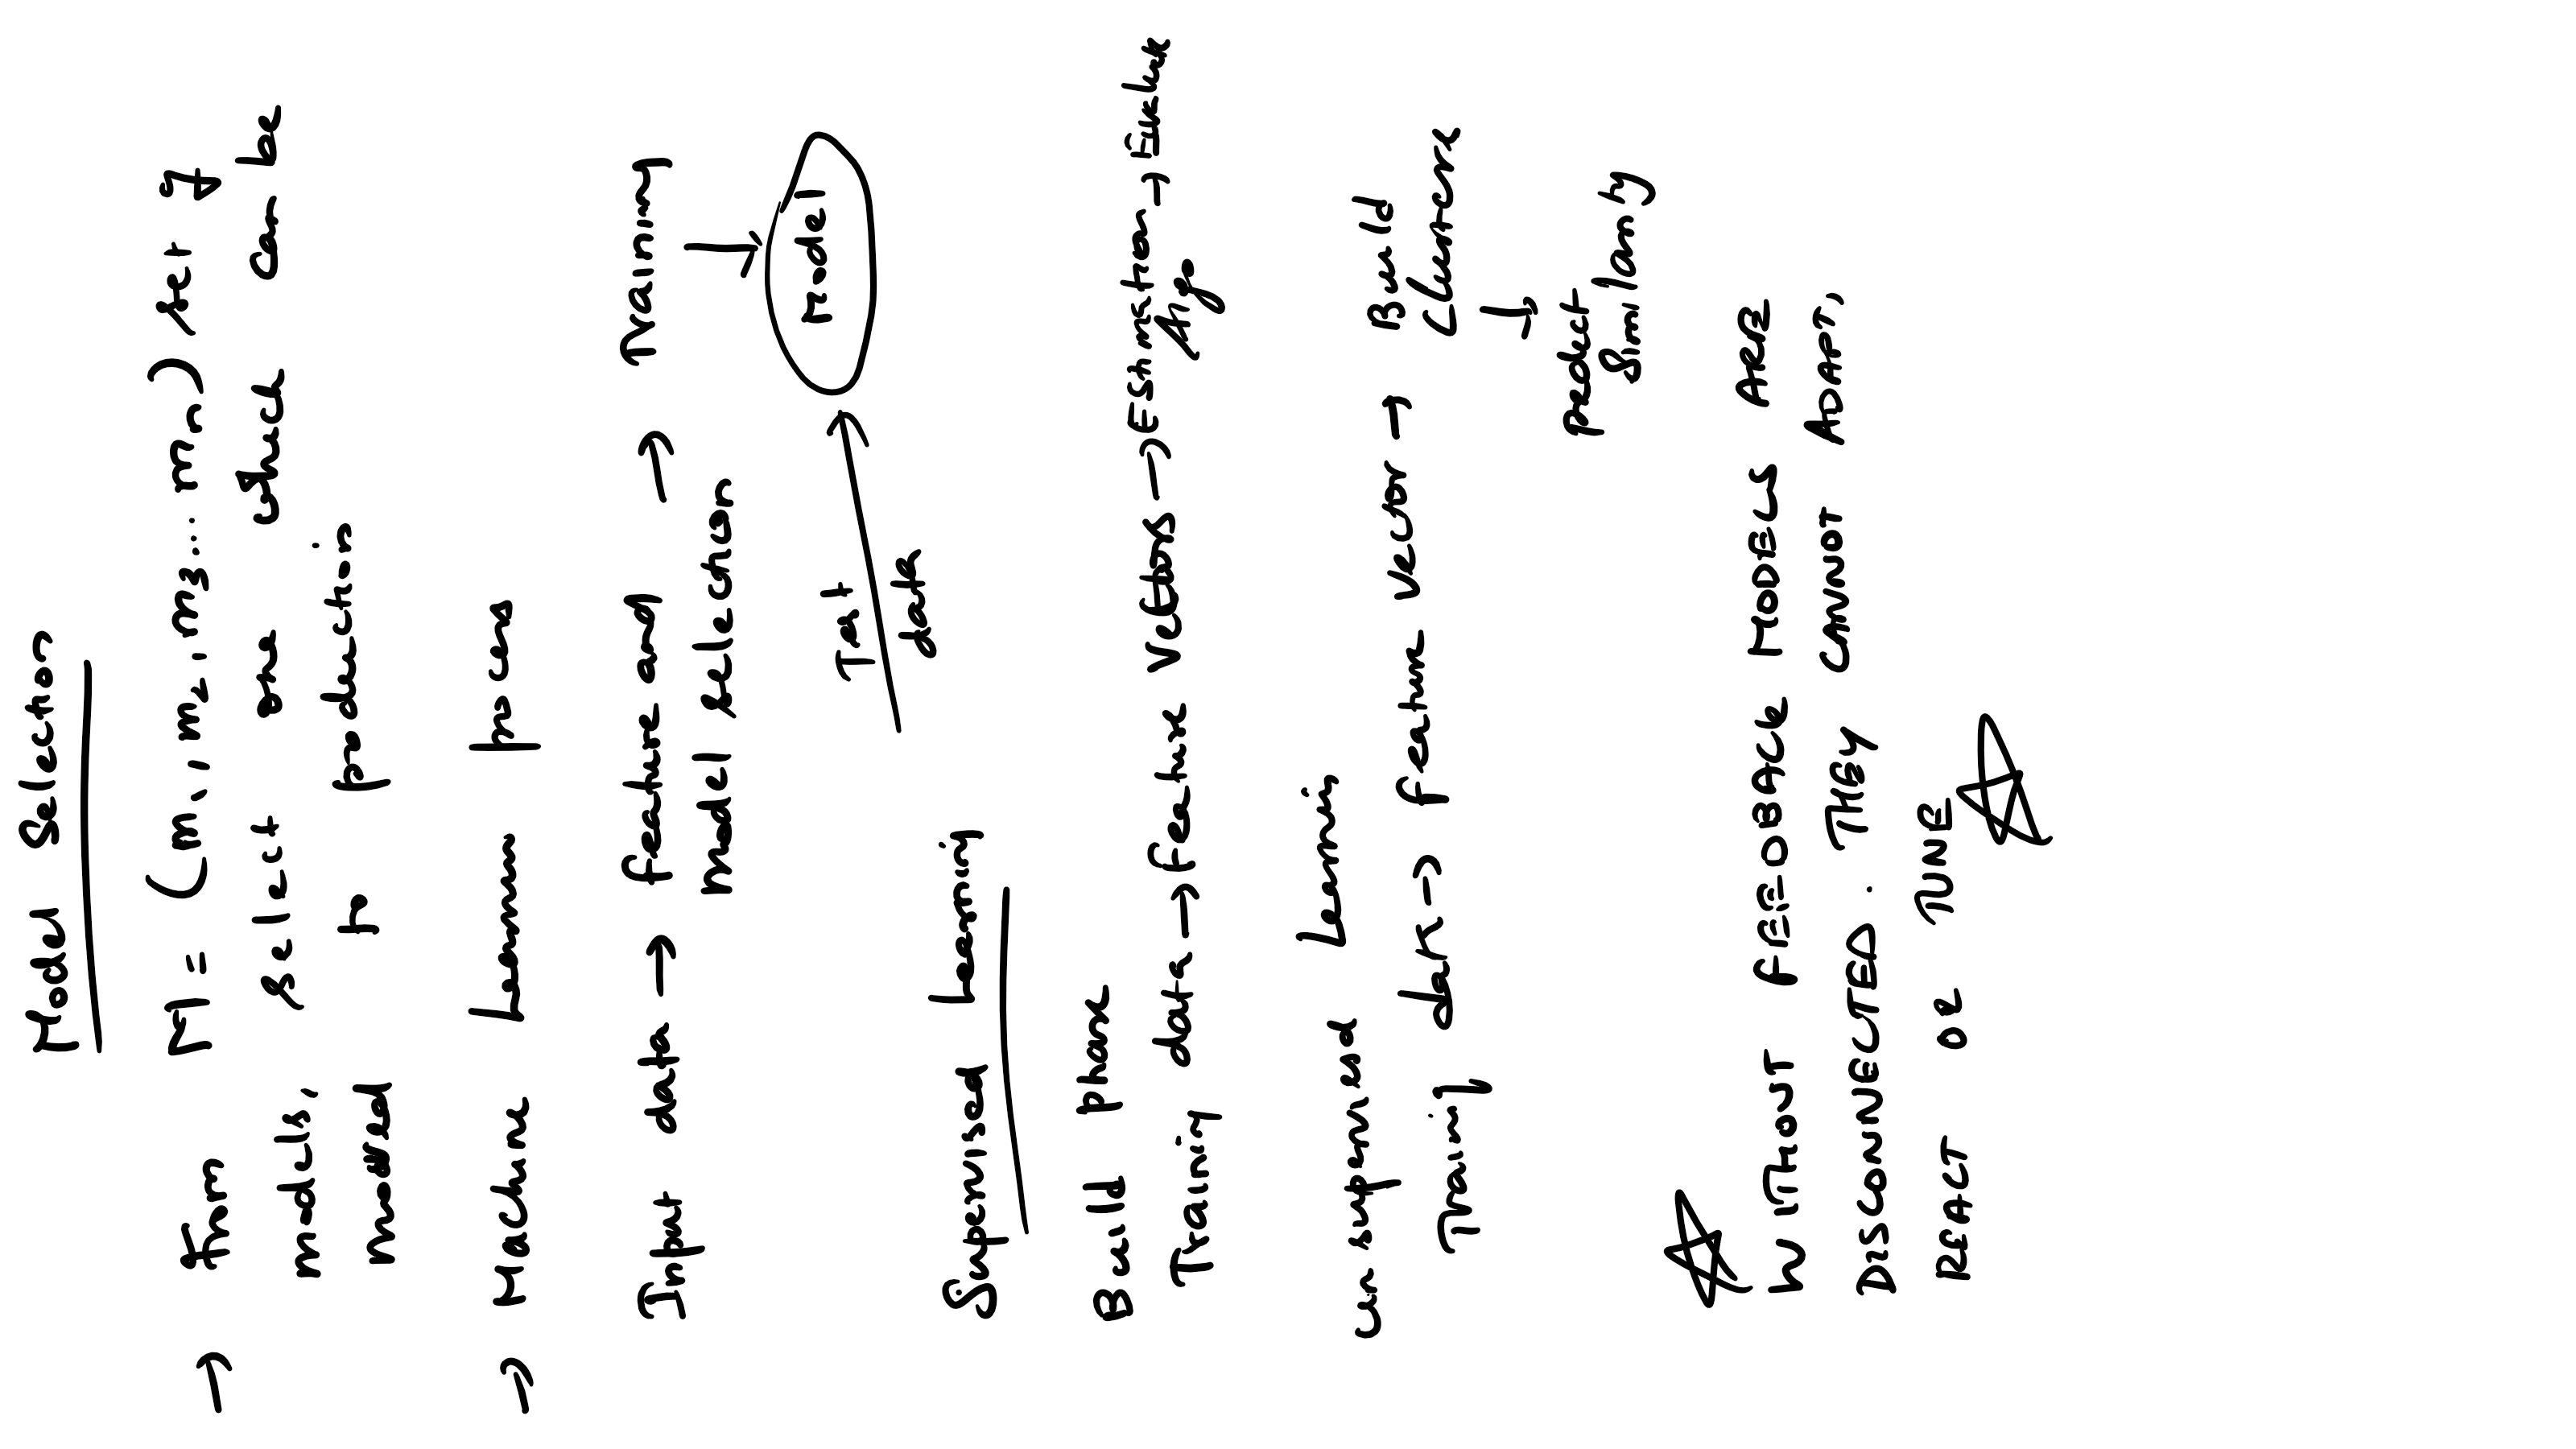 Model Selection
→ From M = (m1, m2, m3... mn) set of
models, select one which can be
moved to production
→ Machine Learnin process
Input data → feature and → Training
model selection
↓
Model
Test
data
Supervised Learning
Build phase
Training data → feature vectors → Estimation → Evaluate
Algo
unsupervised Learnin
Training data → feature vector → Build
Clusters
↓
predect
Similarity
☆
WITHOUT FEEDBACK MODELS ARE
DISCONNECTED. THEY CANNOT ADAPT,
REACT OR TUNE
☆